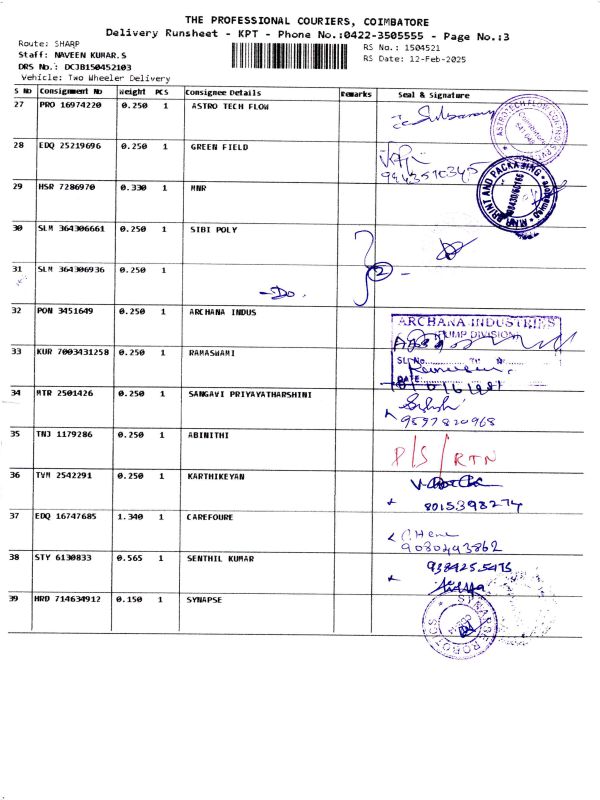 THE PROFESSIONAL COURIERS, COIMBATORE
Delivery Runsheet - KPT - Phone No.:0422-3505555 - Page No.:3
Route: SHARP
RS No.: 1504521
Staff: NAVEEN KUMAR.S
RS Date: 12-Feb-2025
DRS No.: DCJB150452103
Vehicle: Two Wheeler Delivery
S No Consignment No Weight PCS Consignee Details Remarks Seal & Signature
27 PRO 16974220 0.250 1 ASTRO TECH FLOW
28 EDQ 25219696 0.250 1 GREEN FIELD
29 HSR 7286970 0.330 1 MNR
30 SLM 364306661 0.250 1 SIBI POLY
31 SLM 364306936 0.250 1 -Do. 2
32 PON 3451649 0.250 1 ARCHANA INDUS
ARCHANA INDUSTRIES
PUMP DIVISION
33 KUR 7003431258 0.250 1 RAMASWAMI
34 MTR 2501426 0.250 1 SANGAVI PRIYAYATHARSHINI
9597820968
35 TNJ 1179286 0.250 1 ABINITHI
D/S/RTN
36 TVM 2542291 0.250 1 KARTHIKEYAN
8015398274
37 EDQ 16747685 1.340 1 CAREFOURE
9080493862
38 STY 6130833 0.565 1 SENTHIL KUMAR
9384255475
39 HRD 714634912 0.150 1 SYNAPSE